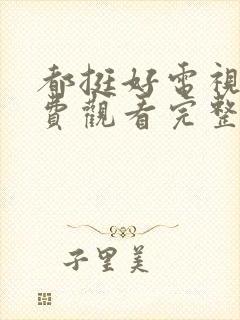 都挺好電視
費觀看完整
子里美